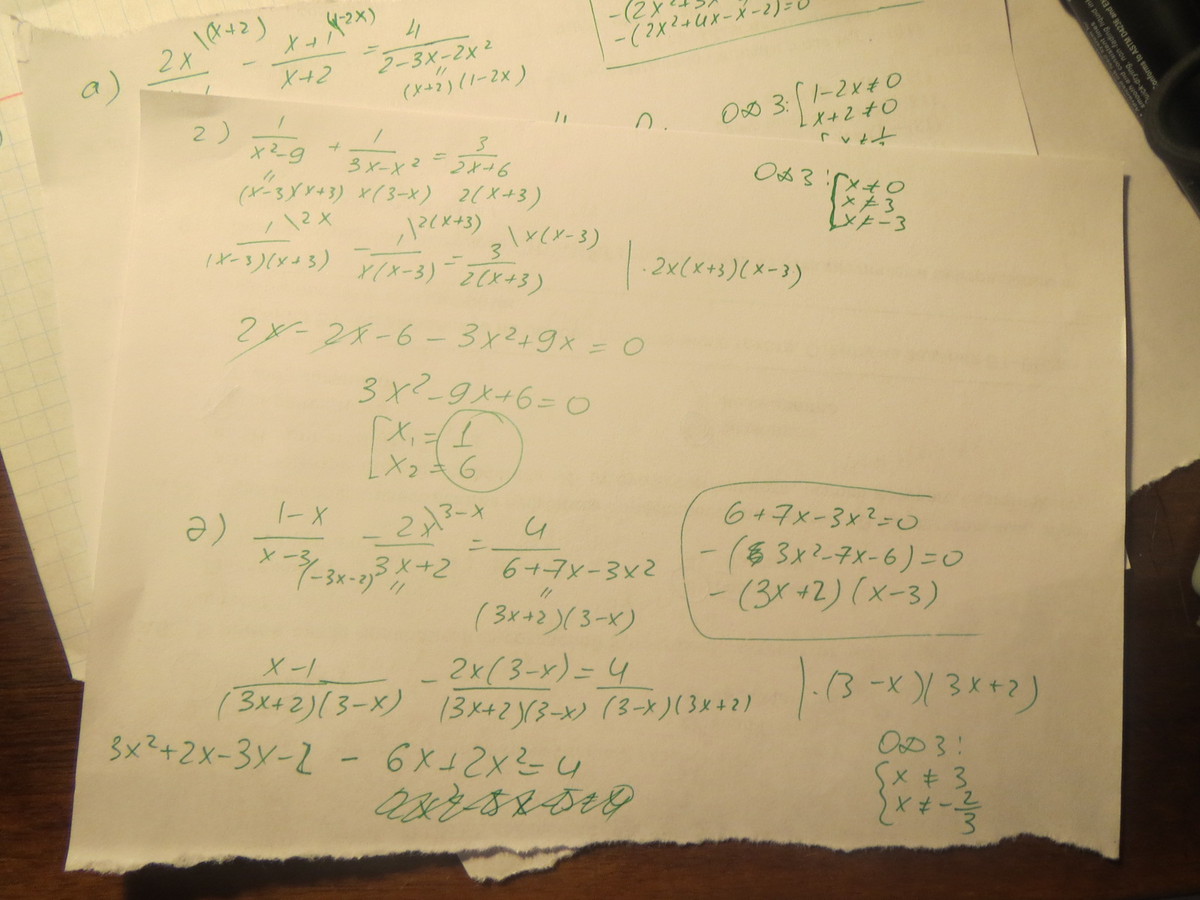 а) 2x\(x+2) - x+1\(1-2x) = 4
x+2 2-3x-2x²
(x+2)(1-2x)
-(2x²+4x-x-2)=0
ОДЗ: { 1-2x≠0
x+2≠0
г) 1/(x²-9) + 1/(3x-x²) = 3/(2x+6)
(x-3)(x+3) x(3-x) 2(x+3)
ОДЗ: { x≠0
x≠3
x≠-3
1\2x/(x-3)(x+3) - 1\2(x+3)/x(x-3) = 3\x(x-3)/2(x+3) | ·2x(x+3)(x-3)
2x-2x-6-3x²+9x=0
3x²-9x+6=0
[ x₁=1
x₂=6
д) 1-x/x-3 (-3x-2) - 2x\3-x/3x+2 = 4/6+7x-3x2
(3x+2)(3-x)
6+7x-3x²=0
-(3x²-7x-6)=0
-(3x+2)(x-3)
x-1/(3x+2)(3-x) - 2x(3-x)/(3x+2)(3-x) = 4/(3-x)(3x+2) | ·(3-x)(3x+2)
3x²+2x-3x-2 - 6x+2x²=4
ОДЗ:
{ x≠3
x≠-2/3